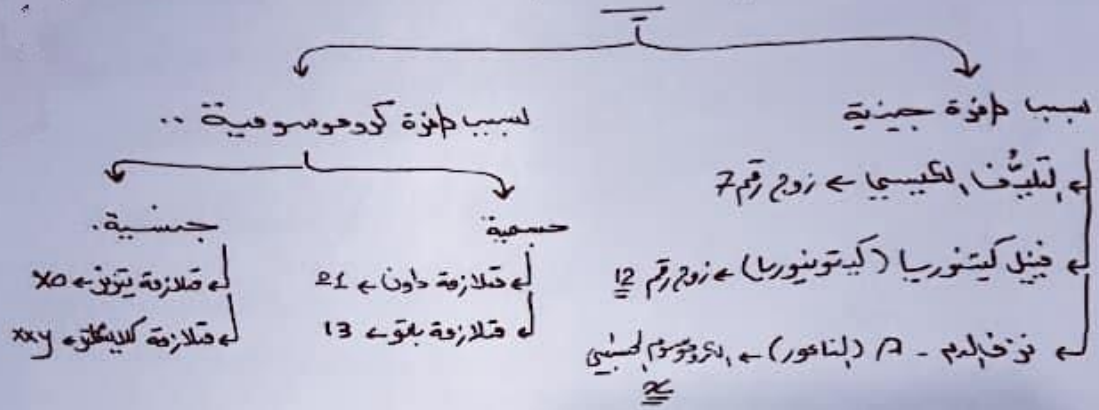 بسبب طفرة جينية
التليُّف الكيسي ← زوج رقم 7
فينيل كيتنوريا (كيتونيوريا) ← زوج رقم 12
نزف الدم - A (الناعور) ← الكروموسوم الجنسي
x
بسبب طفرة كروموسومية ..
جسمية
متلازمة داون ← 21
متلازمة بتو ← 13
جنسية.
متلازمة تيرنر ← xo
متلازمة كلاينفلتر ← xxy